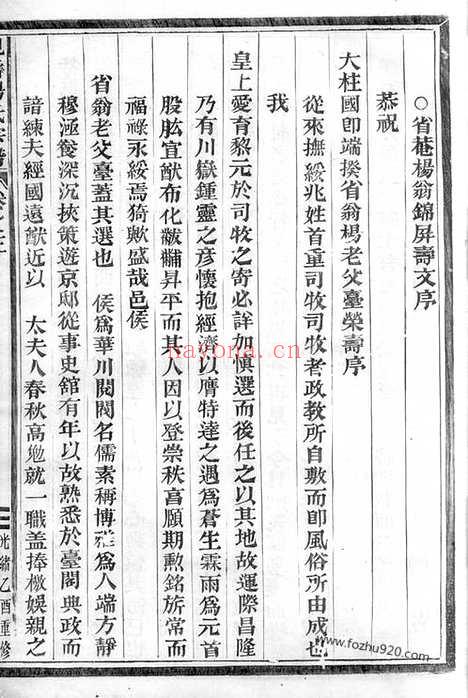 ○省菴楊翁錦屏壽文序
恭祝
大柱國卽端揆省翁楊老父臺榮壽序
從來撫綏兆姓首重司牧司牧者政教所自敷而卽風俗所由成也
我
皇上愛育黎元於司牧之寄必詳加愼選而後任之以其地故運際昌隆
乃有川嶽鍾靈之彥懷抱經濟以膺特達之遇爲蒼生霖雨爲元首
股肱宜猷布化黼黻昇平而其人因以登崇秩富願期勲銘旂常而
福祿永綏焉猗歟盛哉邑侯
省翁老父臺蓋其選也 侯爲華川閥閱名儒素稱博雅爲人端方靜
穆極養深沉挾策遊京邸從事史館有年以故熟悉於臺閣典政而
諳練夫經國遠猷近以 太夫人春秋高勉就一職盖捧檄娛親之
光緒乙酉重修
nayona.cn
www.fozhu920.com